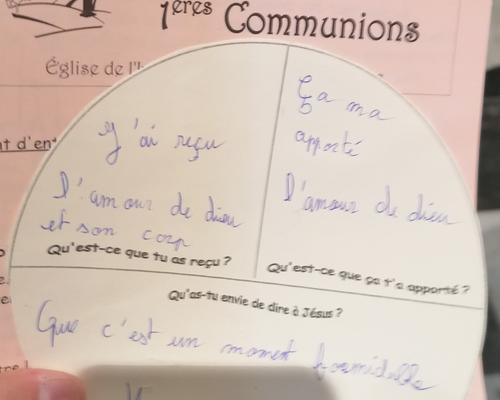 1ères Communions
Église de l'
nt d'en
J'ai reçu
l'amour de dieu
et son corp
Qu'est-ce que tu as reçu ?
Ça ma
apporté
l'amour de dieu
Qu'est-ce que ça t'a apporté ?
Qu'as-tu envie de dire à Jésus ?
Que c'est un moment formidable